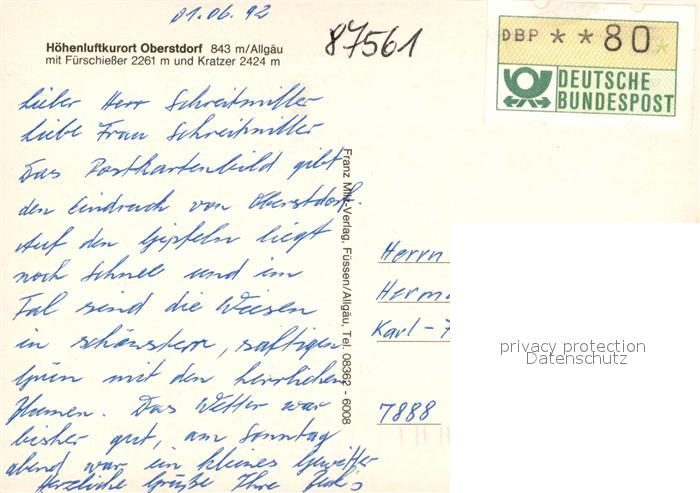 01.06.92
87561
Höhenluftkurort Oberstdorf 843 m/Allgäu
mit Fürschießer 2261 m und Kratzer 2424 m
DBP **80*
DEUTSCHE
BUNDESPOST
Lieber Herr Schreitmiller
Liebe Frau Schreitmiller
Das Postkartenbild gibt
den Eindruck von Oberstdorf.
Auf den Gipfeln liegt
noch Schnee und im
Tal sind die Wiesen
in schönstem, saftigen
Grün mit den herrlichen
Blumen. Das Wetter war
bisher gut, am Sonntag
abend war ein kleines Gewitter
Herzliche Grüße Ihre
Franz Milz-Verlag, Füssen/Allgäu, Tel. 08362 - 6008
Herrn
Herma
Karl-
7888
privacy protection
Datenschutz